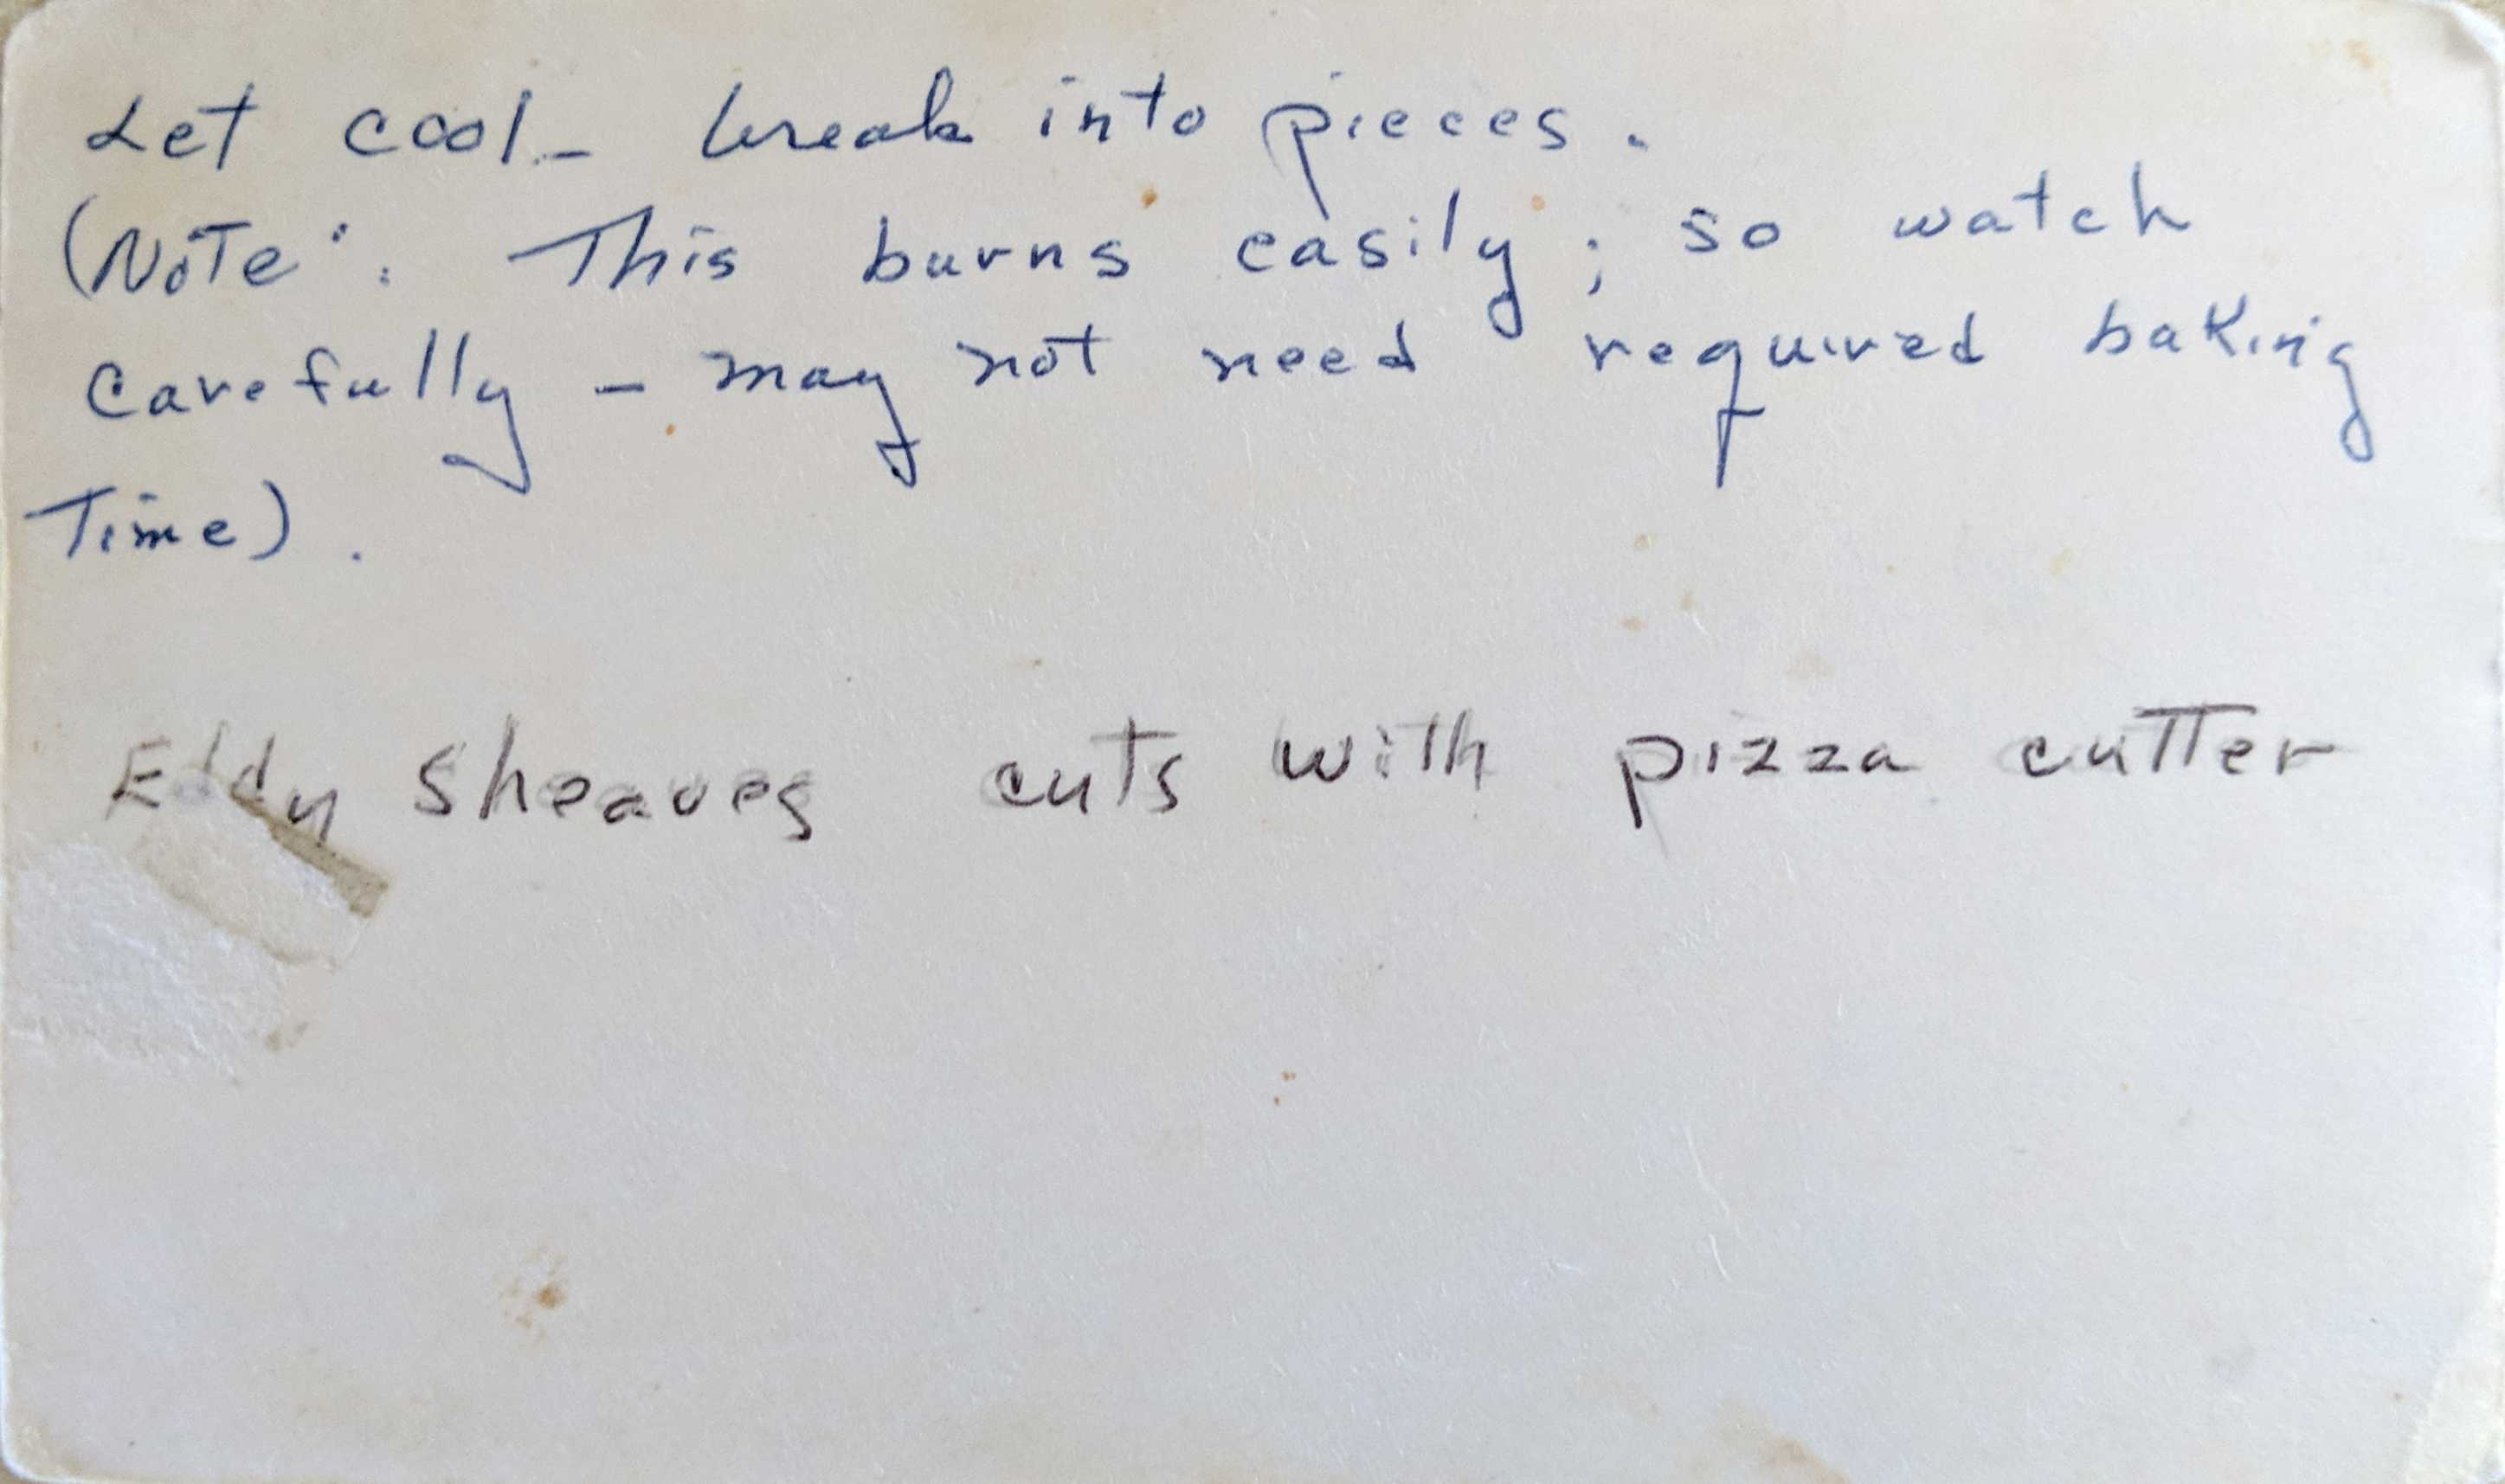 Let cool - break into pieces.
(Note: This burns easily; so watch
carefully - may not need required baking
Time).
Eddy Sheaves cuts with pizza cutter